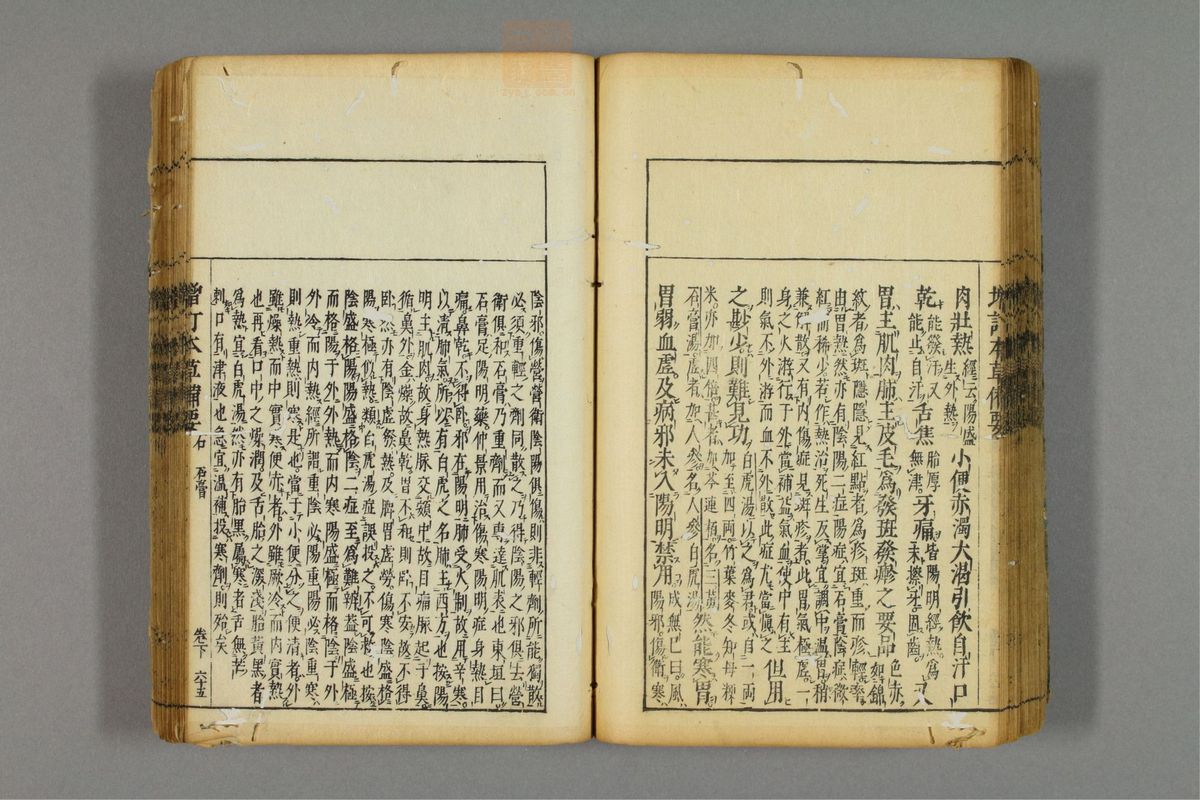 增訂本草備要
肉壯熱經云陽盛生外熱小便赤濁大渴引飲自汗口
乾能發汗又能止自汗舌焦胎厚無津牙痛皆陽明經熱為末擦牙固齒又
胃主肌肉肺主皮毛為發斑發疹之要品色赤如錦
紋者為斑隱隱見紅點者為疹斑重而疹輕率
由胃熱然亦有陰陽二症陽症宜石膏陰症微
紅而稀少若作熱治死生反掌宜調中溫胃稍
兼解散又有內傷症見斑疹者此胃氣極虛一
身之火游行于外當補益氣血使中有主
則氣不外游而血不外散此症尤當慎之但用
之尠少則難見功白虎湯以之為君或自一兩
加至四兩竹葉麥冬知母粳
米亦加四倍甚者加芩連柏名三黃
石膏湯虛者加人參名人參白虎湯然能寒胃
胃弱血虛及病邪未入陽明禁用成無已曰風
陽邪傷衛寒
陰邪傷營營衛陰陽俱傷則非輕劑所能獨散
必須重輕之劑同散之乃得陰陽之邪俱去營
衛俱和石膏乃重劑而又專達肌表也東垣曰
石膏足陽明藥仲景用治傷寒陽明症身熱目
痛鼻乾不得臥邪在陽明肺受火制故用辛寒
以清肺氣所以有白虎之名肺主西方也按陽
明主肌肉故身熱脉交頞中故目痛脉起于鼻
循鼻外金燥故鼻乾胃不和則臥不安故不得
臥然亦有陰虛發熱及脾胃虛勞傷寒陰盛格
陽寒極似熱類白虎湯症誤投之不可救也按
陰盛格陽陽盛格陰二症至為難辨蓋陰盛極
而格陽于外外熱而內寒陽盛極而格陰于外
外冷而內熱經所謂重陰必陽重陽必陰重寒
則熱重熱則寒是也當于小便分之便清者外
雖燥熱而中實寒便赤者外雖厥冷而內實熱
也再看口中之燥潤及舌胎之淺深胎黃黑者
為熱宜白虎湯然亦有胎黑屬寒者舌無芒
刺口有津液也急宜溫補投寒劑則殆矣
增訂本草備要 石 石膏 卷下 六十五